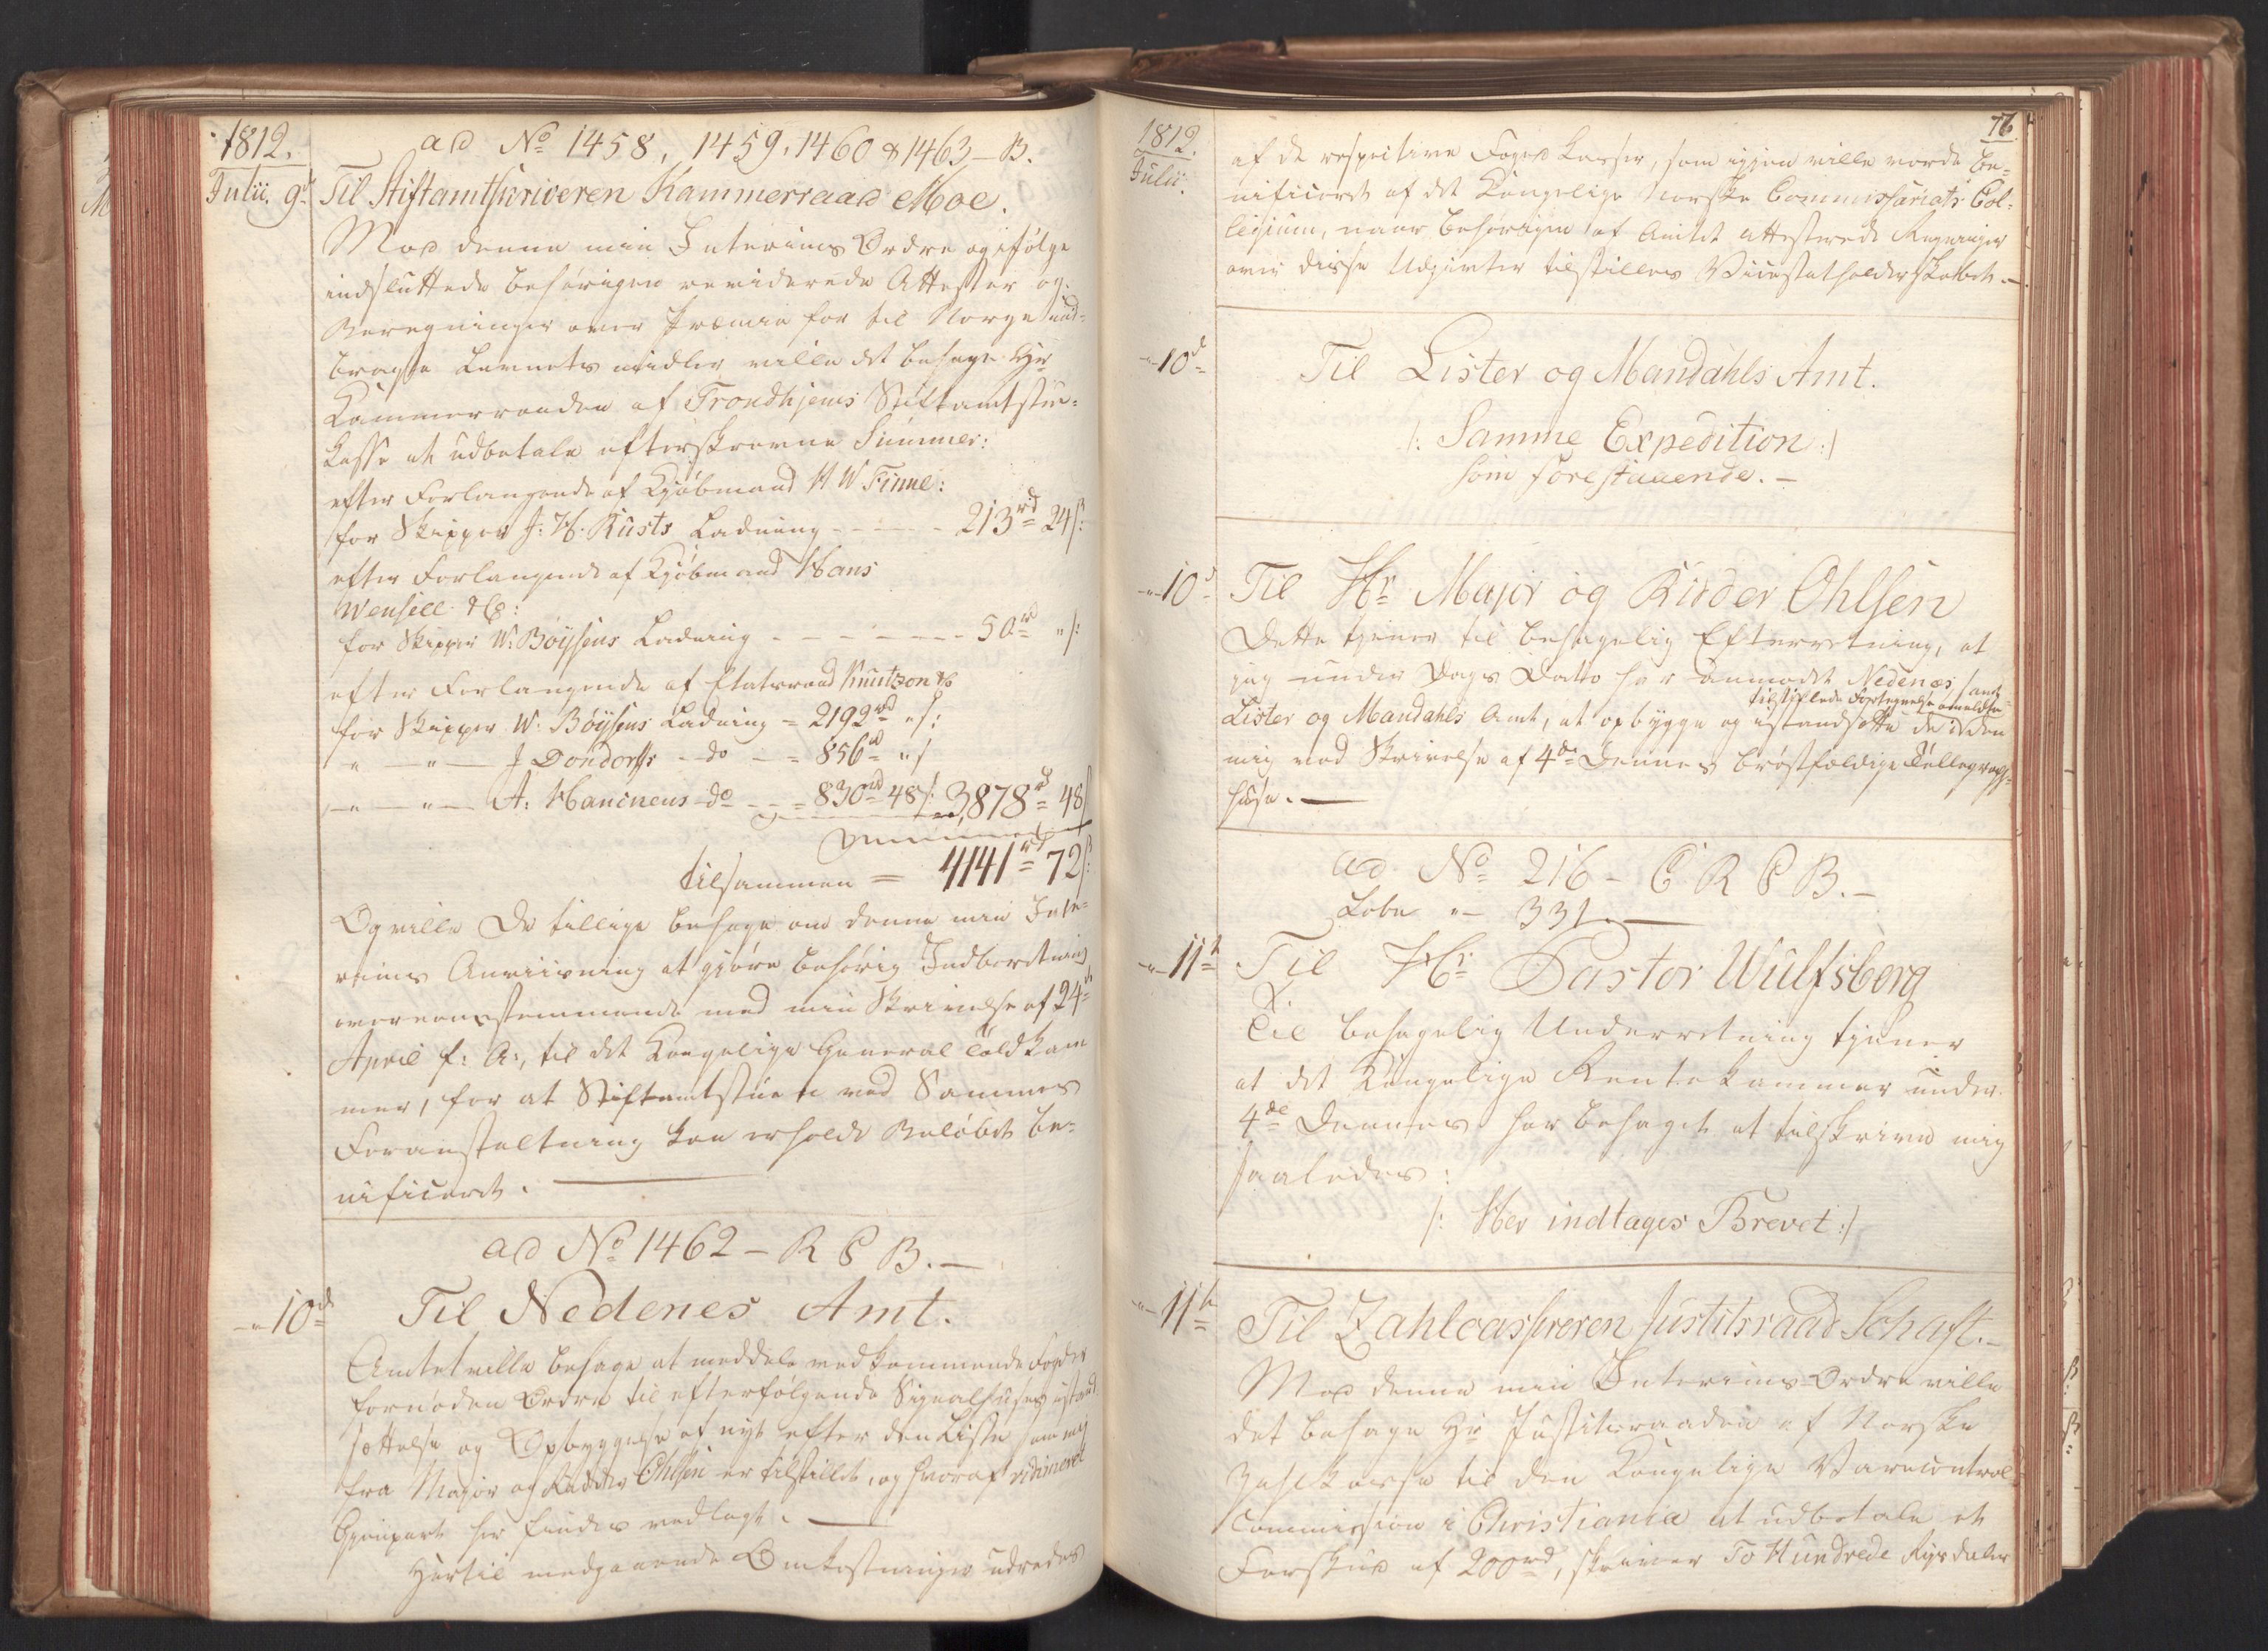 1812.
ad No 1458, 1459, 1460 & 1463 - B.
Julii. 9d
Til Stiftamtskriveren Kammerraad Moe.
Mod denne min Interims Ordre og ifølge
indsluttede behørigen reviderede Attester og
Beregninger over Præmie for til Norge ind-
bragte Levnets midler ville det behage Hr
Kammerraaden af Trondhjems Stiftamtstue-
Casse at udbetale efterskrevne Summer:
efter Forlangende af Kjøbmand H W Finne:
for Skipper J: H. Kusts Ladning - - - - 213rd 24s:
efter Forlangende af Kjøbmand Hans
Wensell & C:
for Skipper W: Böysens Ladning - - - - - - 50rd " s:
efter Forlangende af Etatsraad Knutzon & C
for Skipper W. Böysens Ladning = 2192rd " s:
" — " — J Dondorffs - do - = 856rd " s
— " — " — A: Hanineus - do - - = 830rd 48s: 3,878rd 48s
tilsammen = 4141rd 72s:
Og ville De tillige behage om denne min Inte-
rims Anviisning at gjøre behørig Indberetning
overeensstemmende med min Skrivelse af 24de
April f: A:, til det Kongelige General Toldkam
mer, for at Stiftamtstuen ved Sammes
Foranstaltning kan erholde Beløbet bo-
nificeret. —
ad No 1462 - R C B. —
— " 10d
Til Nedenes Amt.
Amtet ville behage at meddele vedkommende Foged
fornøden Ordre til efterfølgende Signalhuses istand
sættelse og Opbyggelse af nyt efter den Liste som mig
fra Major og Ridder Ohlsen er tilstillet, og hvoraf vidimeret
Gjenpart her findes vedlagt. —
Hertil medgaaende Omkostninger udredes
76
1812.
Julii.
af de respective Foged Casser, som igjen ville vorde bo-
nificeret af det Kongelige Norske Commissariats Col-
legium, naar behørigen af Amtet attesterede Regninger
over disse Udgivter tilstilles Vicestatholderskabet. —
— " 10d
Til Lister og Mandahls Amt.
/: Samme Expedition :/
som forestaaende. —
— " 10d
Til Hr Major og Ridder Ohlsen
Dette tjener til behagelig Efterretning, at
jeg under Dags Dato har anmodet Nedenes samt
Lister og Mandahls Amt, at opbygge og istandsætte de i den
tilstillede Fortegnelse anmeldte
mig ved Skrivelse af 4de Dennes brøstfældige Tellegraph-
huse. —
ad No 216 - C R C B. —
Løbe " — 331. —
— " 11te
Til Hr Pastor Wulfsberg
Til behagelig Underretning tjener
at det Kongelige Rentekammer under
4de Dennes har behaget at tilskrive mig
saaledes:
/: Her indtages Brevet :/
— " 11te
Til Zahlcasseren Justitsraad Schaft. —
Mod denne min Interims-Ordre ville
det behage Hr Justitsraaden af Norske
Zahlkasse til den Kongelige Varecontrol
Commission i Christiania at udbetale et
Forskud af 200rd, skriver To Hundrede Rigsdaler